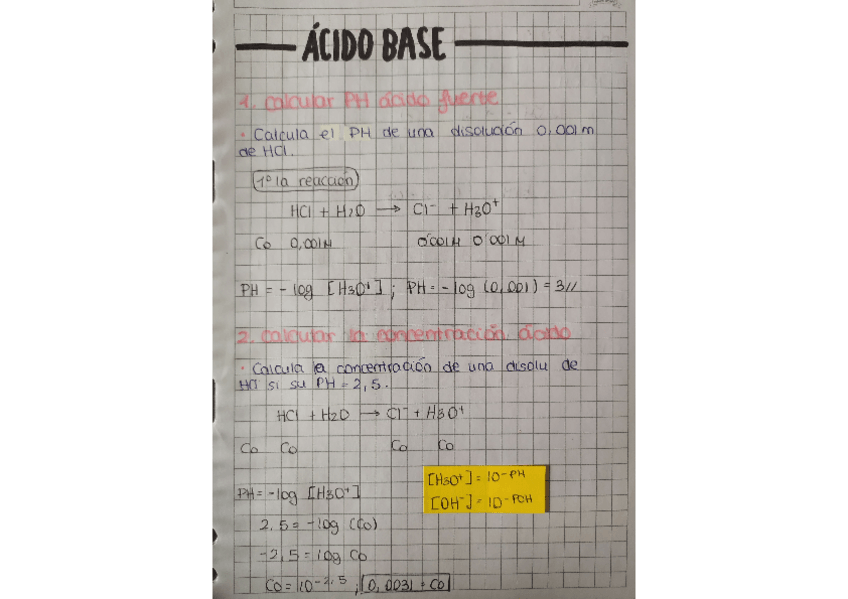 ÁCIDO BASE
1. calcular PH ácido fuerte
· Calcula el PH de una disolución 0,001M
de HCl.
1º la reacción
HCl + H2O → Cl⁻ + H3O⁺
Co 0,001M 0'001M 0'001M
PH = - log [H3O⁺] ; PH = - log (0,001) = 3//
2. calcular la concentración ácido
· Calcula la concentración de una disolu de
HCl si su PH = 2,5.
HCl + H2O → Cl⁻ + H3O⁺
Co Co Co Co
[H3O⁺] = 10⁻ᴾᴴ
PH = -log [H3O⁺]
[OH⁻] = 10⁻ᴾᴼᴴ
2,5 = -log (Co)
-2,5 = log Co
Co = 10⁻²,⁵ ; 0,0031 = Co